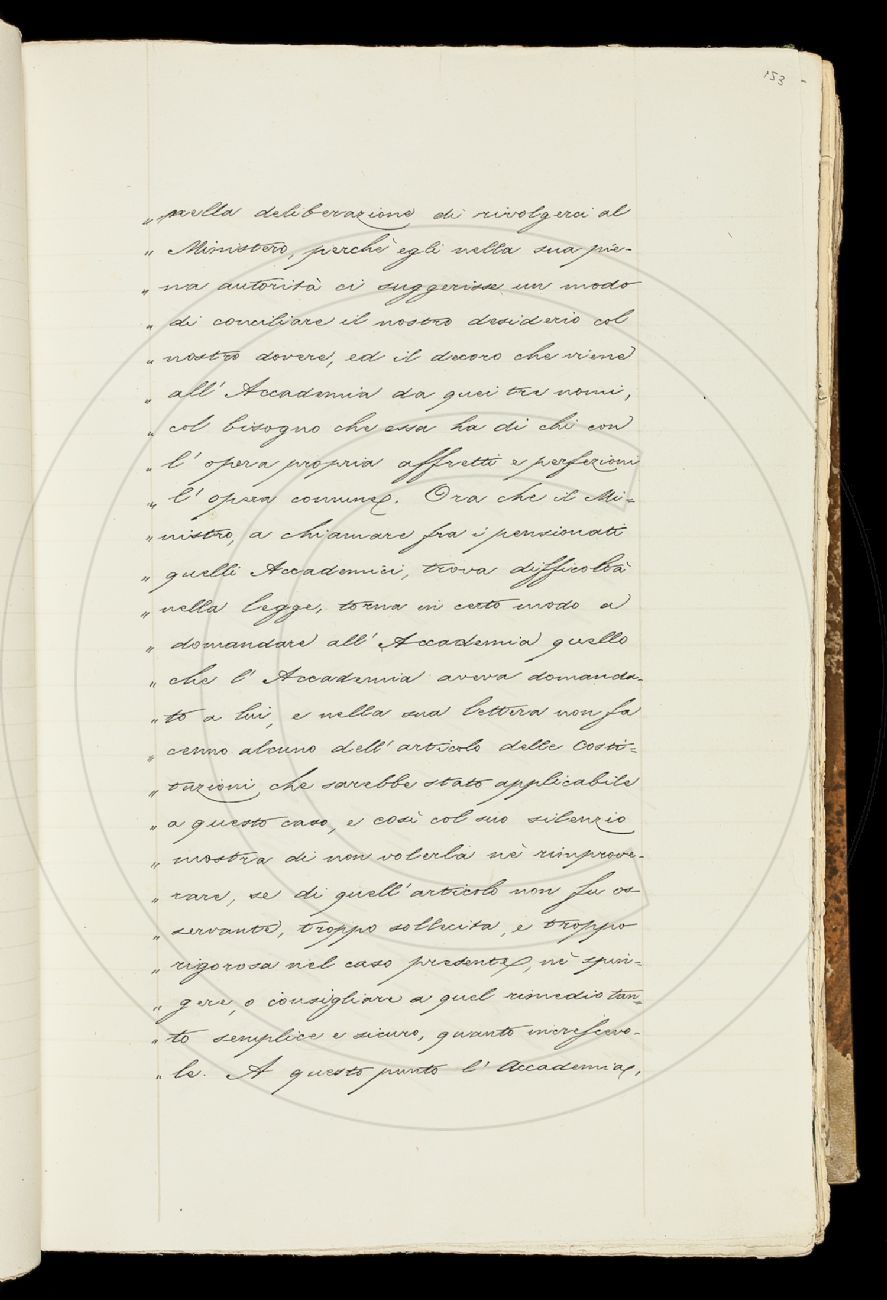 153
„ nella deliberazione di rivolgerci al
„ Ministero, perchè egli nella sua pie-
„ na autorità ci suggerisse un modo
„ di conciliare il nostro desiderio col
„ nostro dovere, ed il decoro che viene
„ all' Accademia da quei tre nomi,
„ col bisogno che essa ha di chi con
„ l' opera propria affretti e perfezioni
„ l' opera comune. Ora che il Mi=
„ nistro, a chiamare fra i pensionati
„ quelli Accademici, trova difficoltà
„ nella legge, torna in certo modo a
„ domandare all' Accademia quello
„ che l' Accademia aveva domanda-
„ to a lui, e nella sua lettera non fa
„ cenno alcuno dell' articolo delle Costi=
„ tuzioni che sarebbe stato applicabile
„ a questo caso, e così col suo silenzio
„ mostra di non volerla nè rimprove-
„ rare, se di quell' articolo non fu os
„ servante, troppo sollecita, e troppo
„ rigorosa nel caso presente, nè spin=
„ gere, o consigliare a quel rimedio tan=
„ to semplice e sicuro, quanto increscevo-
„ le. A questo punto l' Accademia,